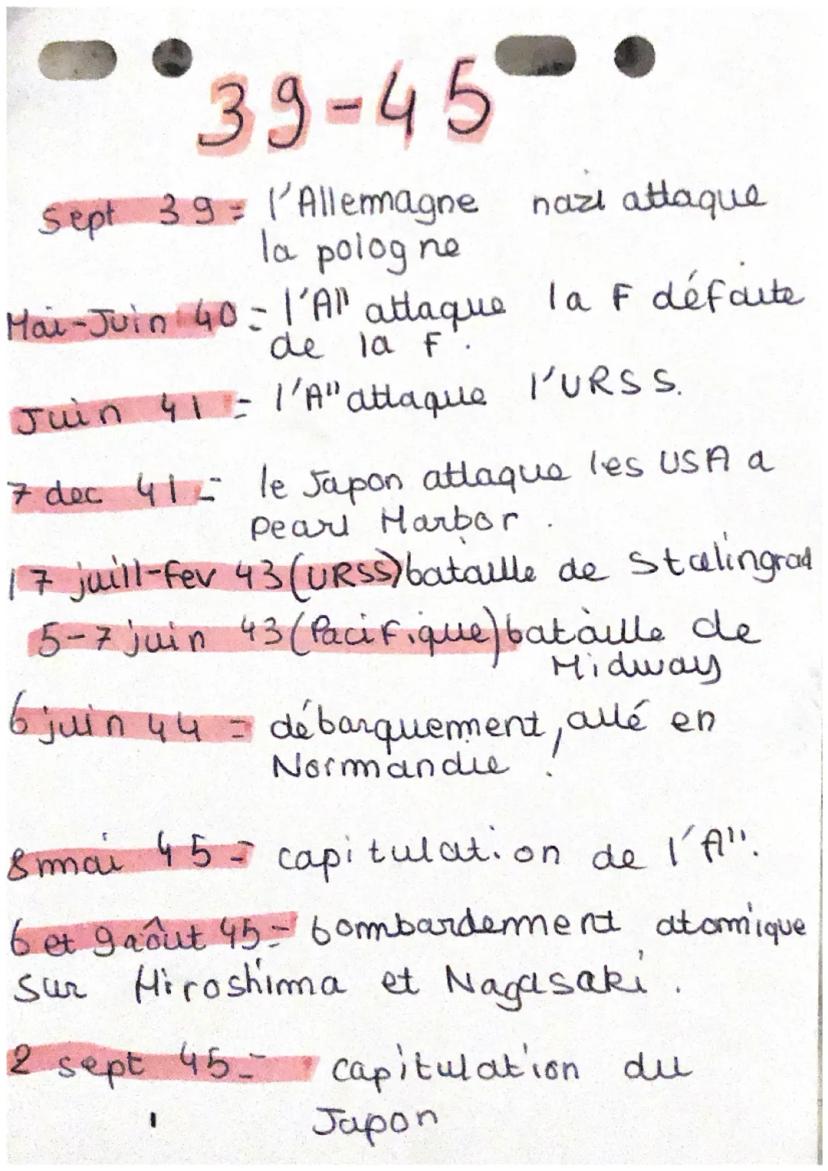 39-45
sept 39= l'Allemagne nazi attaque
la pologne
Mai-Juin 40= l'All attaque la F défaite
de la F.
Juin 41 = l'A" attaque l'URSS.
7 dec 41= le Japon attaque les USA a
Pearl Harbor.
17 juill-fev 43 (URSS) bataille de Stalingrad
5-7 juin 43 (Pacifique) bataille de
Midway
6 juin 44 = débarquement, allé en
Normandie !
8 mai 45= capitulation de l'A".
6 et 9 août 45= bombardement atomique
sur Hiroshima et Nagasaki.
2 sept 45= capitulation du
Japon